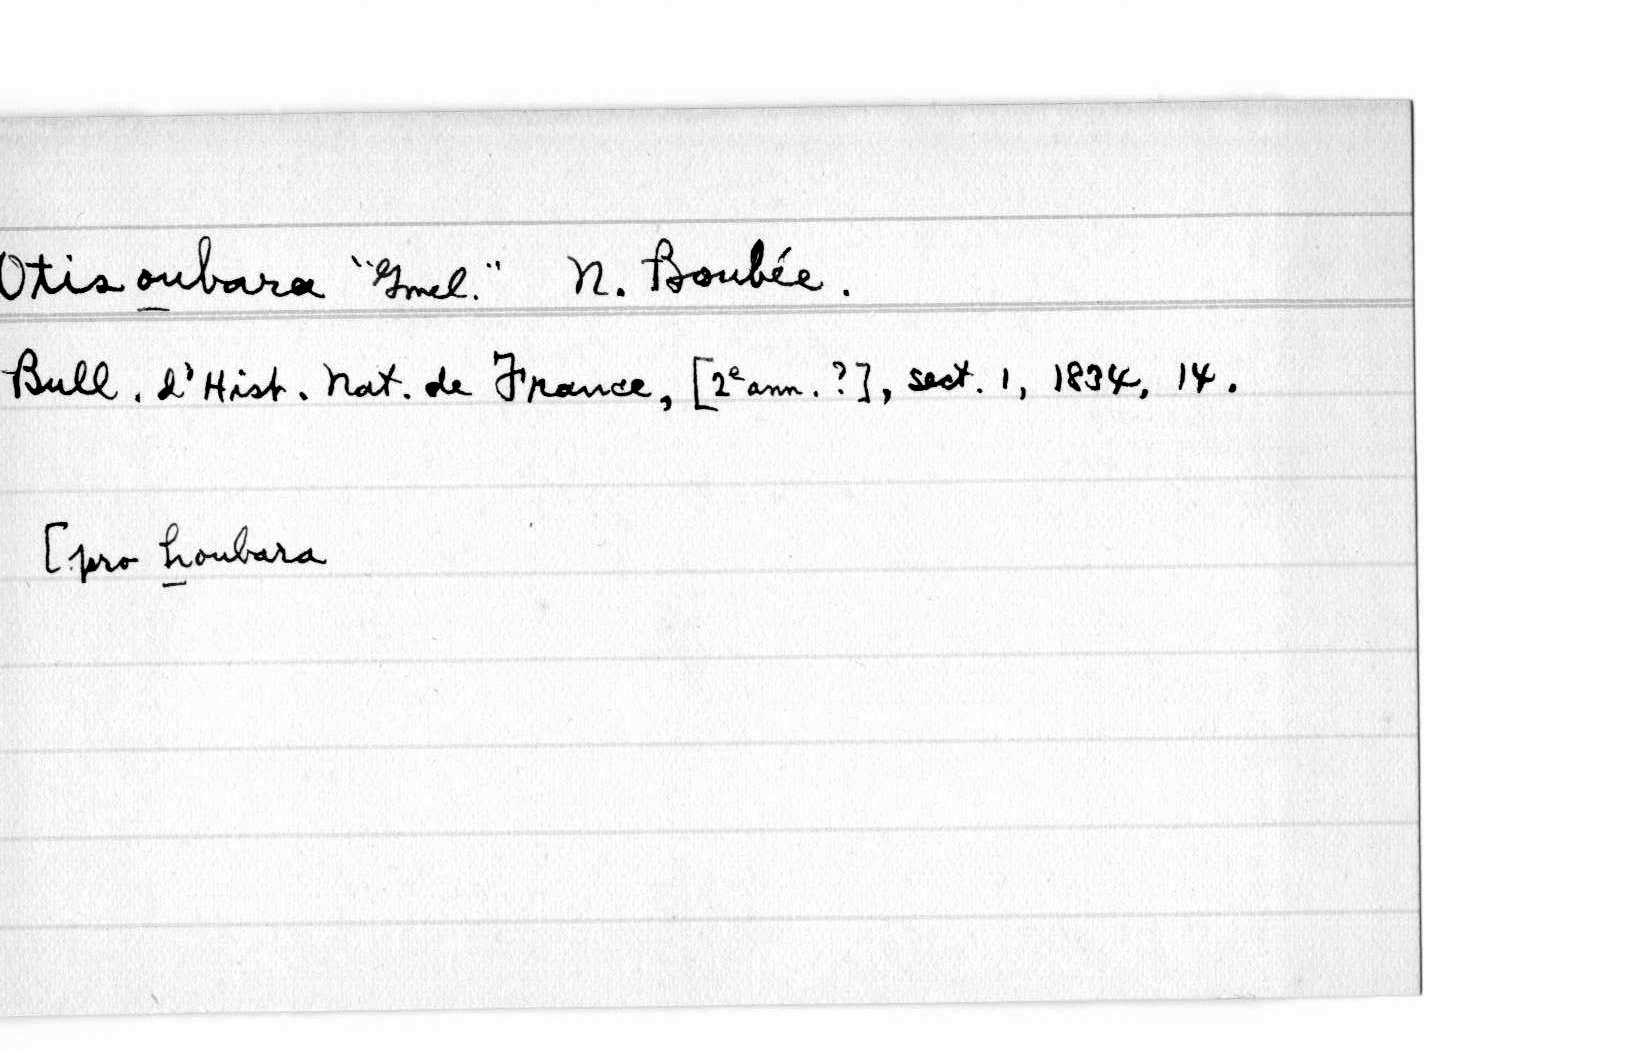 Otis oubara "Gmel." N. Boubée.
Bull. d'Hist. Nat. de France, [2e ann. ?], sect. 1, 1834, 14.
[pro houbara